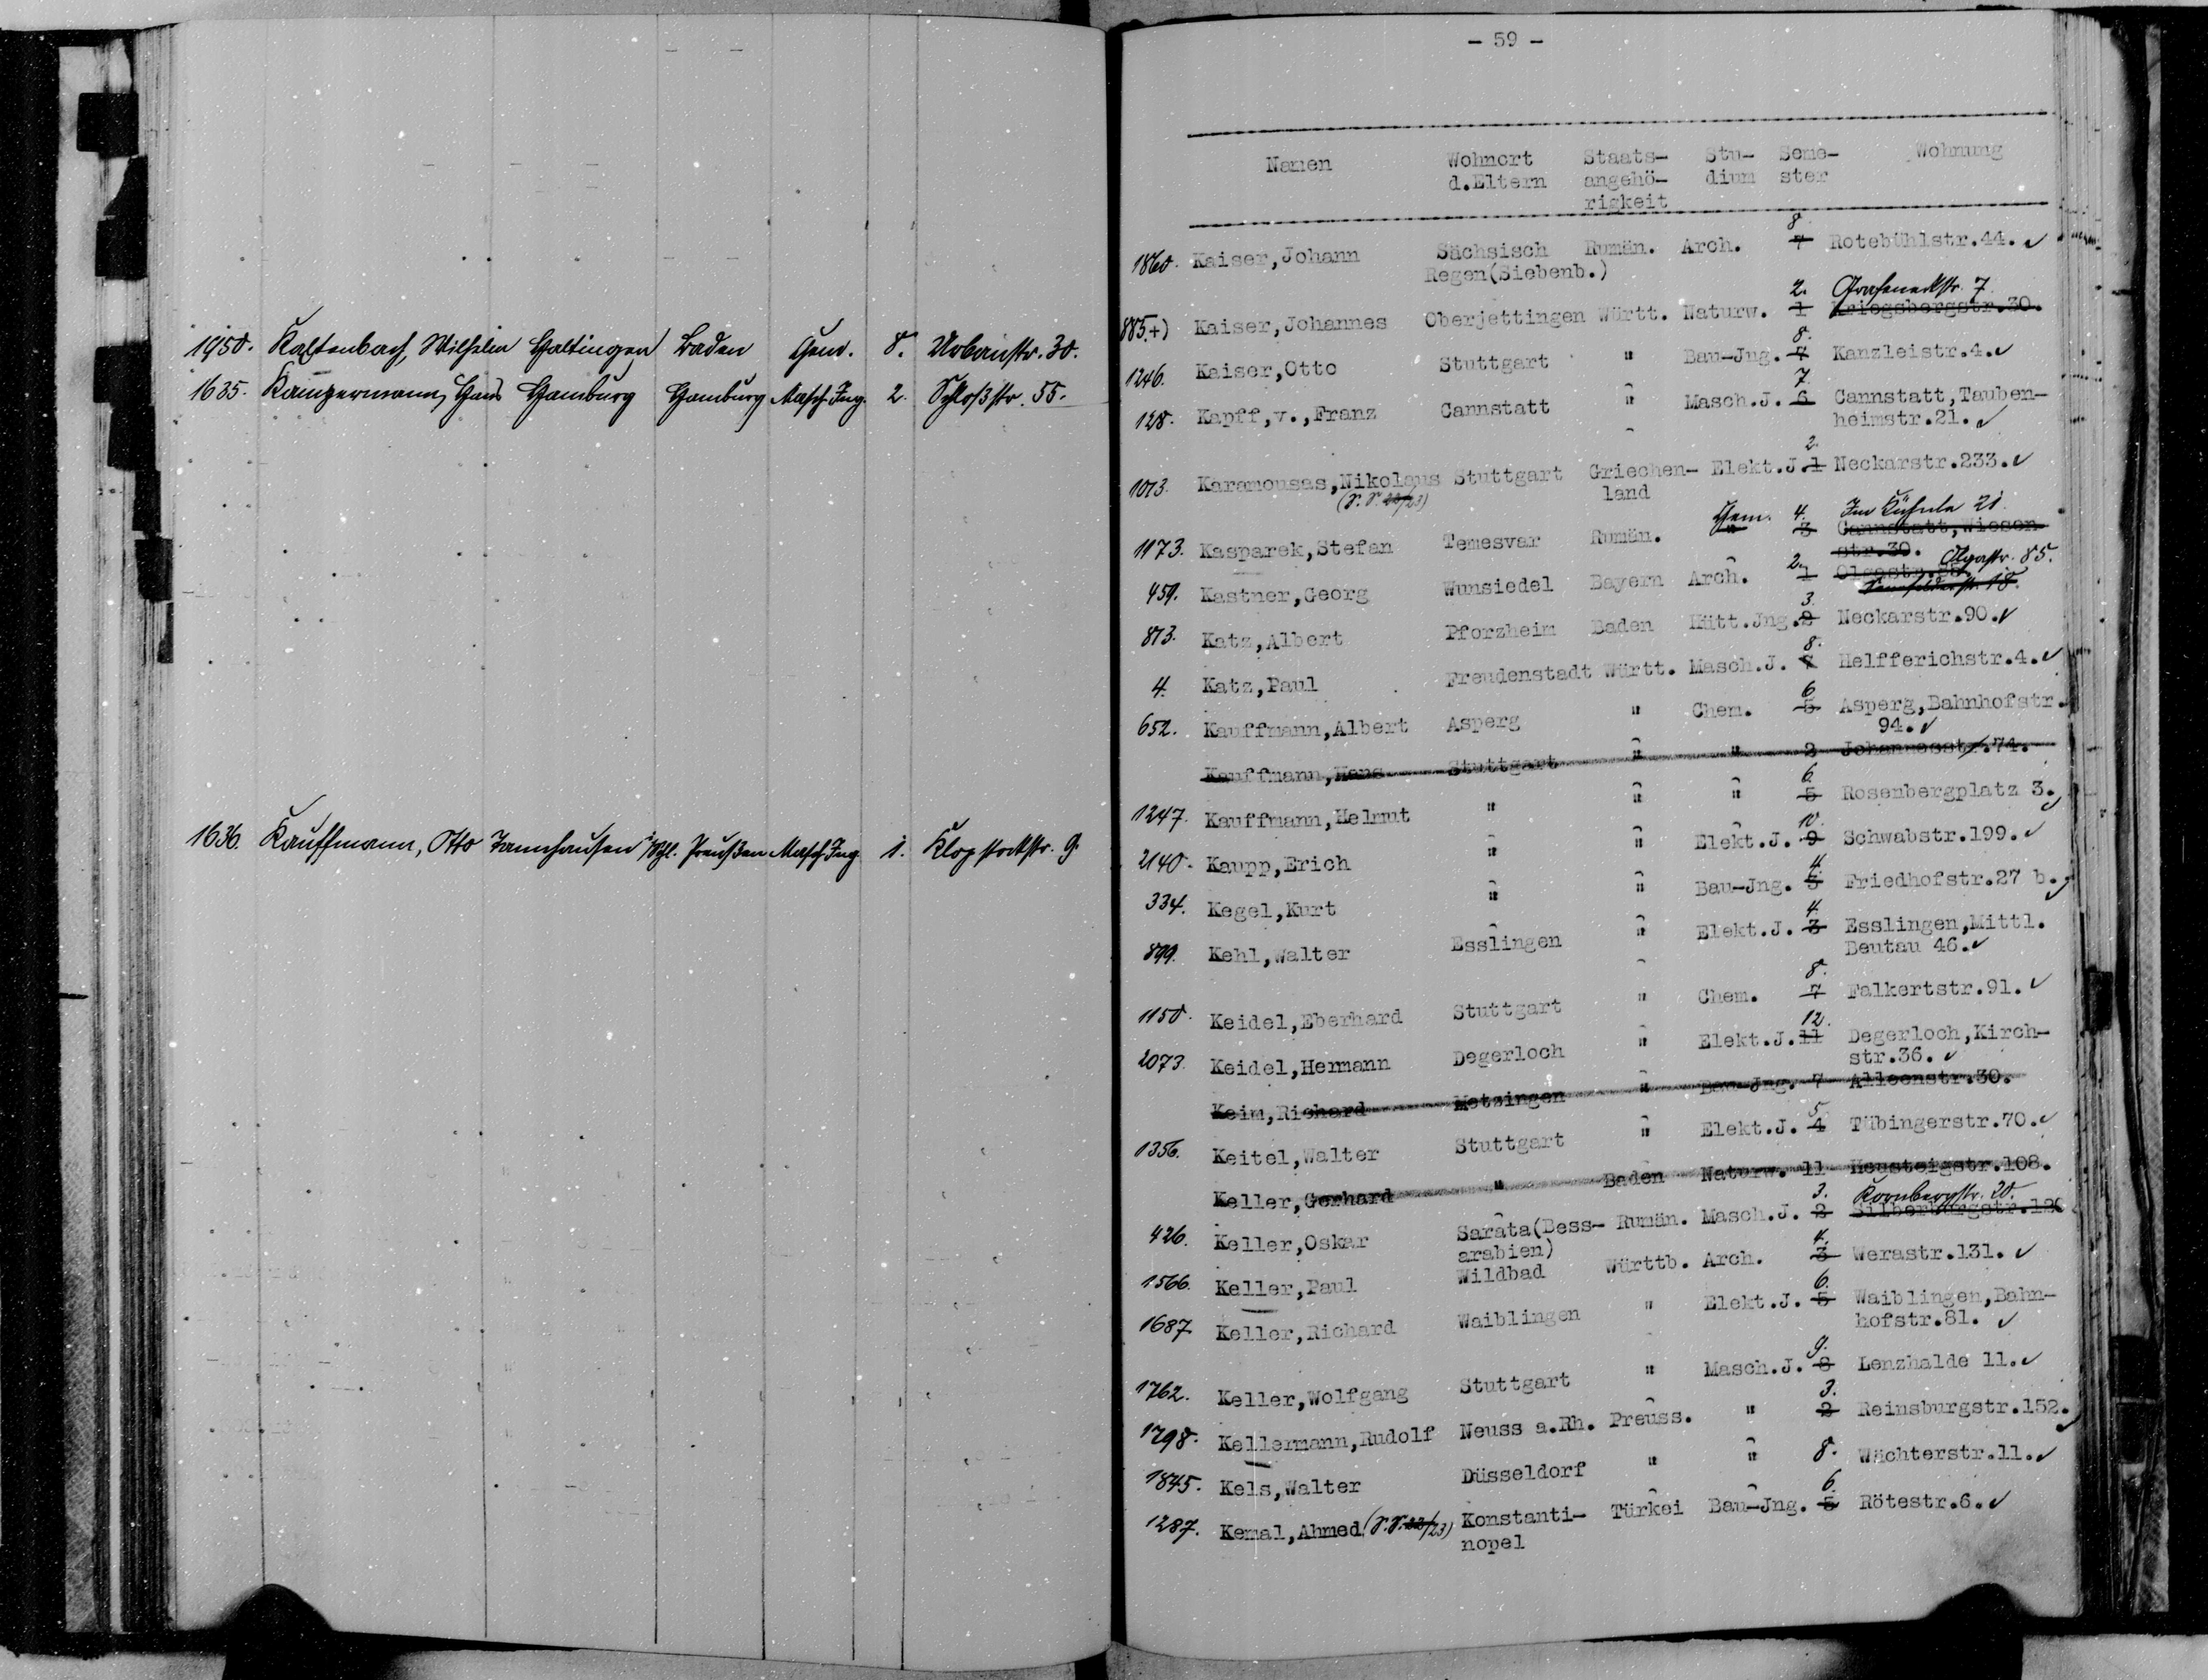 1950. Kaltenbach, Wilhelm Haltingen Baden Chem. 8. Urbanstr. 30.
1635. Kampermann, Hans Hamburg Hamburg Masch.Ing. 2. Schloßstr. 55.
1636. Kauffmann, Otto Tannhausen i/Schl. Preußen Masch.Ing. 1. Klopstockstr. 9.
- 59 -
Namen Wohnort Staats- Stu- Seme- Wohnung
d.Eltern angehö- dium ster
rigkeit
8
1860. Kaiser,Johann Sächsisch Rumän. Arch. 7 Rotebühlstr.44. ✓
Regen(Siebenb.)
2. Grafeneckstr. 7.
885.+) Kaiser,Johannes Oberjettingen Württ. Naturw. 1 Kriegsbergstr.30.
8.
1246. Kaiser,Otto Stuttgart " Bau-Jng. 7 Kanzleistr.4.✓
7.
128. Kapff,v.,Franz Cannstatt " Masch.J. 6 Cannstatt,Tauben-
heimstr.21. ✓
2.
1013. Karamousas,Nikolaus Stuttgart Griechen- Elekt.J.1 Neckarstr.233.✓
(S.S. 22/23) land
Chem. 4. Im Kühnle 21.
1173. Kasparek,Stefan Temesvar Rumän. " 3 Cannstatt,Wiesen-
str.30.
2. Olgastr. 85.
459. Kastner,Georg Wunsiedel Bayern Arch. 1
3.
873. Katz,Albert Pforzheim Baden Hütt.Jng.2 Neckarstr.90.✓
8.
4. Katz,Paul Freudenstadt Württ. Masch.J. 7 Helfferichstr.4.✓
6
652. Kauffmann,Albert Asperg " Chem. 5 Asperg,Bahnhofstr.
94.✓
Kauffmann,Hans Stuttgart " " 2 Johannesstr.74.
6.
1247. Kauffmann,Helmut " " " 5 Rosenbergplatz 3.✓
10.
2140. Kaupp,Erich " " Elekt.J. 9 Schwabstr.199.✓
4.
334. Kegel,Kurt " " Bau-Jng. 3 Friedhofstr.27 b.✓
4.
899. Kehl,Walter Esslingen " Elekt.J. 3 Esslingen,Mittl.
Beutau 46.✓
8.
1150. Keidel,Eberhard Stuttgart " Chem. 7 Falkertstr.91. ✓
12.
2073. Keidel,Hermann Degerloch " Elekt.J.11 Degerloch,Kirch-
str.36. ✓
Keim,Richard Metzingen " Bau-Jng. 7 Alleenstr.30.
5
1356. Keitel,Walter Stuttgart " Elekt.J. 4 Tübingerstr.70.✓
Keller,Gerhard " Baden Naturw. 11 Heusteigstr.108.
3. Kornbergstr. 20.
426. Keller,Oskar Sarata(Bess- Rumän. Masch.J. 2 Silberburgstr.
arabien)
4.
1566. Keller,Paul Wildbad Württb. Arch. 3 Werastr.131. ✓
6.
1687. Keller,Richard Waiblingen " Elekt.J. 5 Waiblingen,Bahn-
hofstr.81. ✓
9.
1762. Keller,Wolfgang Stuttgart " Masch.J. 8 Lenzhalde 11.✓
3.
1798. Kellermann,Rudolf Neuss a.Rh. Preuss. " 2 Reinsburgstr.152.✓
1845. Kels,Walter Düsseldorf " " 8. Wächterstr.11.✓
6.
1287. Kemal,Ahmed (S.S. 22/23) Konstanti- Türkei Bau-Jng. 5 Rötestr.6.✓
nopel